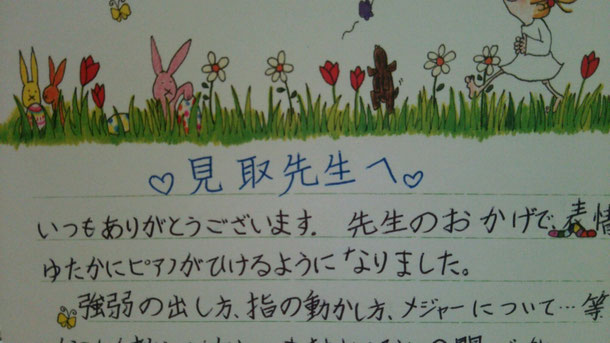 ♡見取先生へ♡
いつもありがとうございます. 先生のおかげで、表情
ゆたかにピアノがひけるようになりました。
強弱の出し方、指の動かし方、メジャーについて…等